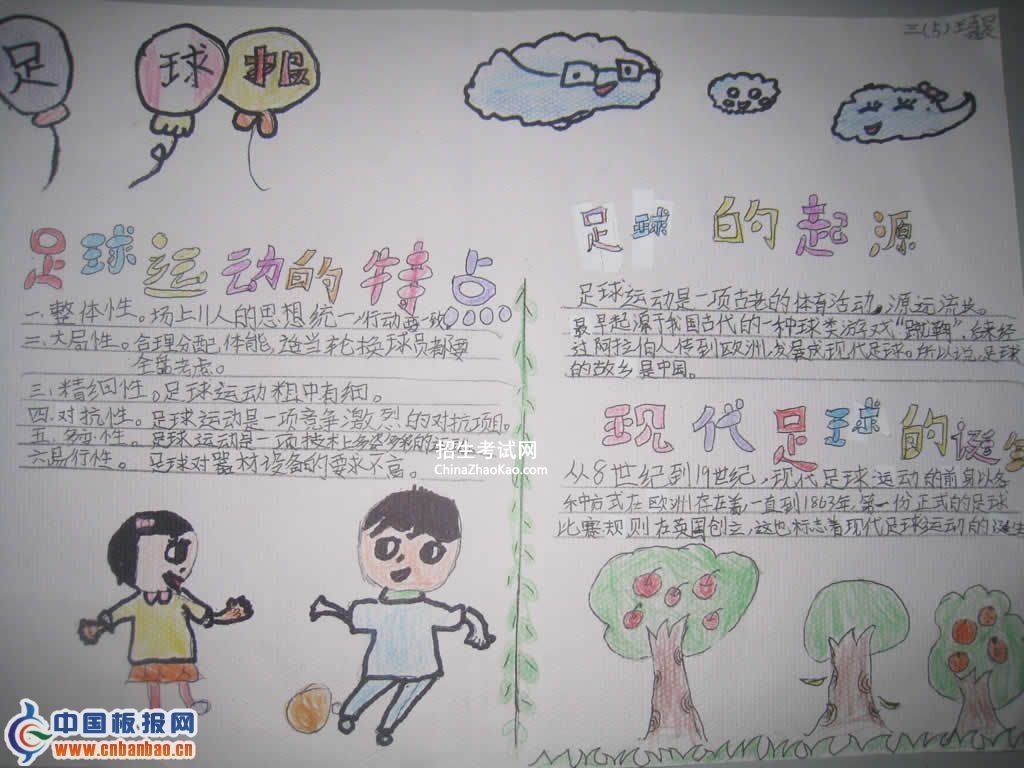 足球报
三(5)王
足球运动的特点
一.整体性。场上11人的思想统一,行动要一致。
二.大局性。合理分配体能,适当轮换球员都要
全量去虑。
三.精细性。足球运动粗中有细。
四.对抗性。足球运动是一项竞争激烈的对抗项目。
五.多变性。足球运动是一项技术上多姿多彩的
六.易行性。足球对器材设备的要求不高。
足球的起源
足球运动是一项古老的体育活动,源远流长。
最早起源于我国古代的一种球类游戏"蹴鞠",后来经
过阿拉伯人传到欧洲,发展成现代足球。所以说,足球
的故乡是中国。
现代足球的诞生
从8世纪到19世纪,现代足球运动的前身以各
种方式在欧洲存在着,一直到1863年,第一份正式的足球
比赛规则在英国创立,这也标志着现代足球运动的诞生
招生考试网
ChinaZhaoKao.com
中国板报网
www.cnbanbao.cn